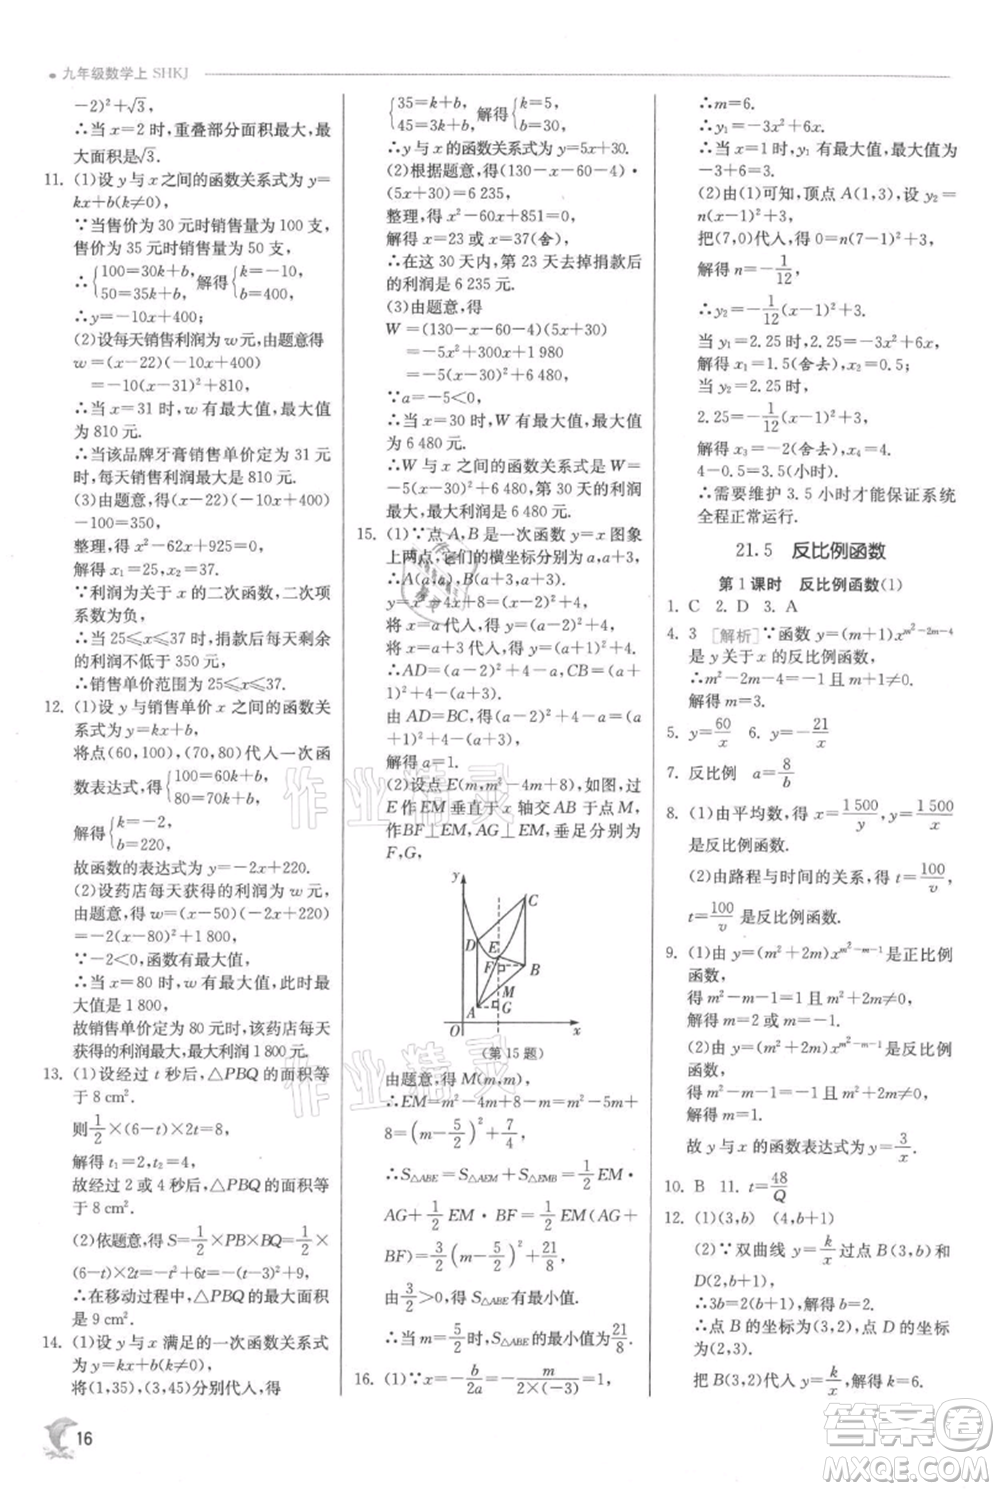 九年级数学上 SHKJ
-2)²+√3,
∴当 x=2 时,重叠部分面积最大,最
大面积是√3.
11. (1)设 y 与 x 之间的函数关系式为 y=
kx+b(k≠0),
∵当售价为 30 元时销售量为 100 支,
售价为 35 元时销售量为 50 支,
∴{100=30k+b, 50=35k+b 解得{k=-10, b=400.
∴y=-10x+400;
(2)设每天销售利润为 w 元,由题意得
w=(x-22)(-10x+400)
=-10(x-31)²+810,
∴当 x=31 时,w 有最大值,最大值
为 810 元.
∴当该品牌牙膏销售单价定为 31 元
时,每天销售利润最大是 810 元.
(3)由题意,得(x-22)(-10x+400)
-100=350,
整理,得 x²-62x+925=0,
解得 x₁=25,x₂=37.
∵利润关于 x 的二次函数,二次项系
数为负,
∴当 25≤x≤37 时,捐款后每天剩余
的利润不低于 350 元,
∴销售单价范围为 25≤x≤37.
12. (1)设 y 与销售单价 x 之间的函数关
系式为 y=kx+b,
将点(60,100),(70,80)代入一次函
数表达式,得{100=60k+b, 80=70k+b,
解得{k=-2, b=220.
故函数的表达式为 y=-2x+220;
(2)设药店每天获得的利润为 w 元,
由题意,得 w=(x-50)(-2x+220)
=-2(x-80)²+1 800,
∵-2<0,函数有最大值,
∴当 x=80 时,w 有最大值,此时最
大值是 1 800,
故销售单价定为 80 元时,该药店每天
获得的利润最大,最大利润 1 800 元.
13. (1)设经过 t 秒后,△PBQ 的面积等
于 8 cm².
则 1/2×(6-t)×2t=8,
解得 t₁=2,t₂=4,
故经过 2 或 4 秒后,△PBQ 的面积等
于 8 cm².
(2)依题意,得 S=1/2×PB×BQ=1/2×
(6-t)×2t=-t²+6t=-(t-3)²+9,
∴在移动过程中,△PBQ 的最大面积
是 9 cm².
14. (1)设 y 与 x 满足的一次函数关系式
为 y=kx+b(k≠0),
将(1,35),(3,45)分别代入,得
{35=k+b, 45=3k+b, 解得{k=5, b=30,
∴y 与 x 的函数关系式为 y=5x+30;
(2)根据题意,得(130-x-60-4)·
(5x+30)=6 235,
整理,得 x²-60x+851=0,
解得 x=23 或 x=37(舍),
∴在这 30 天内,第 23 天去掉捐款后
的利润是 6 235 元.
(3)由题意,得
W=(130-x-60-4)(5x+30)
=-5x²+300x+1 980
=-5(x-30)²+6 480,
∵a=-5<0,
∴当 x=30 时,W 有最大值,最大值
为 6 480 元.
∴W 与 x 之间的函数关系式是 W=
-5(x-30)²+6 480,第 30 天的利润
最大,最大利润是 6 480 元.
15. (1)∵点 A,B 是一次函数 y=x 图象
上两点,它们的横坐标分别为 a,a+3,
∴A(a,a),B(a+3,a+3),
将 x=a 代入,得 y=a²-4a+8,
将 x=a+3 代入,得 y=a²+2a+5,
∴AD=(a²-4a+8)-a,CB=(a²+
2a+5)-(a+3),
由 AD=BC,得(a²-4a+8)-a=(a²
+2a+5)-(a+3),
解得 a=1.
(2)设点 E(m,m²-4m+8),如图,过
E 作 EM 垂直于 x 轴交 AB 于点 M,
作 BF⊥EM,AG⊥EM,垂足分别为
F,G,
y
C
D
E
F
B
M
A
G
O
x
(第 15 题)
由题意,得 M(m,m),
∴EM=m²-4m+8-m=m²-5m+
8=(m-5/2)²+7/4,
∴S△ABE=S△AEM+S△EMB=1/2 EM·
AG+1/2 EM·BF=1/2 EM(AG+
BF)=3/2(m-5/2)²+21/8,
由3/2>0,得 S△ABE有最小值.
∴当 m=5/2时,S△ABE的最小值为21/8.
16. (1)∵x=-b/2a=-m/2×(-3)=1,
∴m=6.
∴y₁=-3x²+6x.
∴当 x=1 时,y₁ 有最大值,最大值为
-3+6=3;
(2)由(1)可知,顶点 A(1,3),设 y₂=
n(x-1)²+3,
把(7,0)代入,得 0=n(7-1)²+3,
解得 n=-1/12.
∴y₂=-1/12(x-1)²+3.
当 y₁=2.25 时,-3x²+6x=2.25,
解得 x₁=0.5,x₂=1.5(舍去),
当 y₂=2.25 时,
2.25=-1/12(x-1)²+3,
解得 x₃=-2(舍去),x₄=4.
4-0.5=3.5(小时).
∴需要维护 3.5 小时才能保证系统
全程正常运行.
21.5 反比例函数
第 1 课时 反比例函数(1)
1. C 2. D 3. A
4. 3 [解析]∵函数 y=(m+1)x^(m²-2m-4)
是 y 关于 x 的反比例函数,
∴m²-2m-4=-1 且 m+1≠0,
解得 m=3.
5. y=60/x 6. y=-21/x
7. 反比例 a=8/b
8. (1)由平均数,得 x=1 500/y,y=1 500/x
是反比例函数.
(2)由路程与时间的关系,得 t=100/v,
t=100/v 是反比例函数.
9. (1)由 y=(m²+2m)x^(m²-m-1)是正比例
函数,
得 m²-m-1=1 且 m²+2m≠0,
解得 m=2 或 m=-1.
(2)由 y=(m²+2m)x^(m²-m-1)是反比例
函数,
得 m²-m-1=-1 且 m²+2m≠0,
解得 m=1.
故 y 与 x 的函数表达式为 y=3/x.
10. B 11. t=48/Q
12. (1)(3,b) (4,b+1)
(2)∵双曲线 y=k/x过点 B(3,b)和
D(2,b+1),
∴3b=2(b+1),解得 b=2.
∴点 B 的坐标为(3,2),点 D 的坐标
为(2,3).
把 B(3,2)代入 y=k/x,解得 k=6.
16
作业精灵
作业精灵
答案圈
MXQE.COM